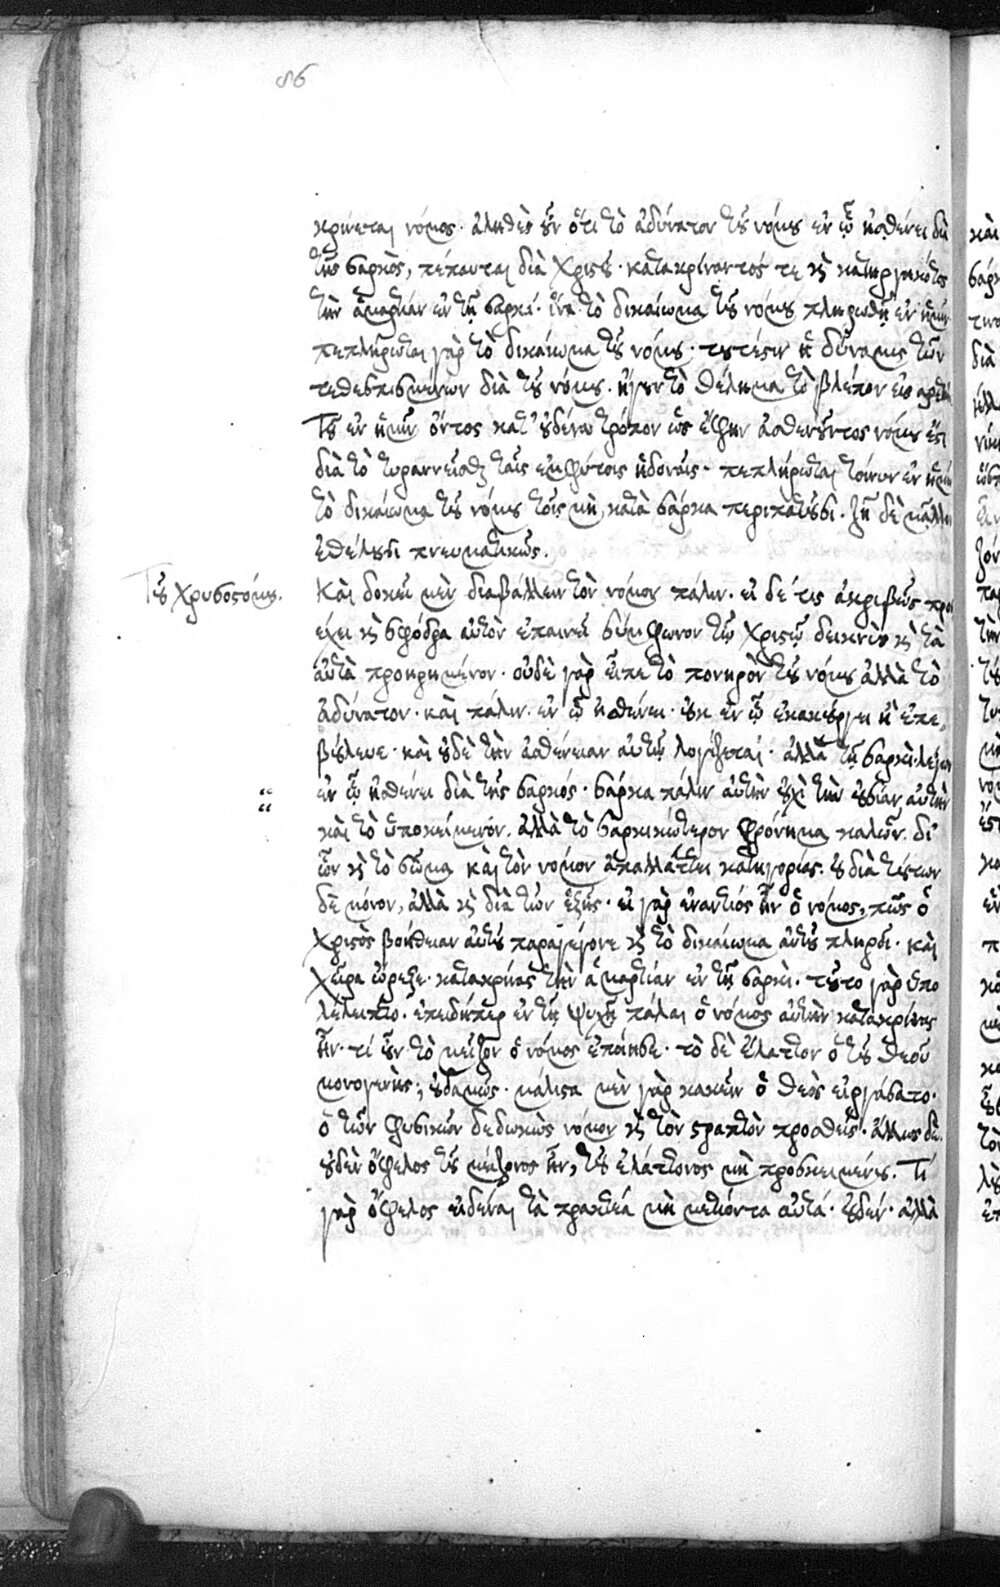 86
κρίνεται νόμος· ἀληθὲς οὖν ὅτι τὸ ἀδύνατον τοῦ νόμου ἐν ᾧ ἠσθένει διὰ
τῆς σαρκὸς, πέπαυται διὰ Χριστοῦ· κατακρίναντός τε καὶ κατηργηκότος
τὴν ἁμαρτίαν ἐν τῇ σαρκί· ἵνα τὸ δικαίωμα τοῦ νόμου πληρωθῇ ἐν ἡμῖν·
πεπλήρωται γὰρ τὸ δικαίωμα τοῦ νόμου· τουτέστιν ἡ δύναμις τῶν
τεθεσπισμένων διὰ τοῦ νόμου· ἤγουν τὸ θέλημα τὸ βλέπον εἰς ἀρετὴν
Τοῦ ἐν ἡμῖν ὄντος κατ' οὐδένα τρόπον ὡς ἔφην ἀσθενοῦντος νόμου ἔτι
διὰ τὸ τυραννεῖσθαι ταῖς ἐμφύτοις ἡδοναῖς· πεπλήρωται τοίνυν ἐν ἡμῖν
τὸ δικαίωμα τοῦ νόμου τοῖς μὴ κατὰ σάρκα περιπατοῦσι· ζῆν δὲ μᾶλλον
ἐθέλουσι πνευματικῶς.
Τοῦ Χρυσοστόμου.
Καὶ δοκεῖ μὲν διαβάλλειν τὸν νόμον πάλιν· εἰ δέ τις ἀκριβῶς προσ
έχει καὶ σφόδρα αὐτὸν ἐπαινεῖ σύμφωνον τῷ Χριστῷ δεικνὺς καὶ τὰ
αὐτὰ προηρημένον· οὐδὲ γὰρ εἶπε τὸ πονηρὸν τοῦ νόμου ἀλλὰ τὸ
ἀδύνατον· καὶ πάλιν· ἐν ᾧ ἠσθένει· οὐκ ἐν ᾧ ἐκακούργει ἢ ἐπε
βούλευε· καὶ οὐδὲ τὴν ἀσθένειαν αὐτῷ λογίζεται· ἀλλὰ τῇ σαρκὶ· λέγων
“ ἐν ᾧ ἠσθένει διὰ τῆς σαρκός· σάρκα πάλιν αὐτὴν οὐχὶ τὴν οὐσίαν αὐτὴν
“ καὶ τὸ ὑποκείμενόν· ἀλλὰ τὸ σαρκικώτερον φρόνημα καλῶν· δι'
ὧν καὶ τὸ σῶμα καὶ τὸν νόμον ἀπαλλάττει κατηγορίας· οὐ διὰ τούτων
δὲ μόνον, ἀλλὰ καὶ διὰ τῶν ἑξῆς· εἰ γὰρ ἐναντιός ἦν ὁ νόμος, πῶς ὁ
Χριστὸς βοήθειαν αὐτοῦ παραγέγονε καὶ τὸ δικαίωμα αὐτοῦ πληροῖ· καὶ
χεῖρα ὤρεξε· κατακρίνας τὴν ἁμαρτίαν ἐν τῇ σαρκὶ· τοῦτο γὰρ ὑπο
λέλειπτο· ἐπειδήπερ ἐν τῇ ψυχῇ πάλαι ὁ νόμος αὐτὴν κατακρίνας
ἦν· τί οὖν τὸ μεῖζον ὁ νόμος ἐποίησε· τὸ δὲ ἔλαττον ὁ τοῦ θεοῦ
μονογενὴς; οὐδαμῶς· μάλιστα μὲν γὰρ κακεῖν ὁ θεὸς εἰργάσατο·
ὁ τῶν φυσικῶν δεδωκὼς νόμον καὶ τὸν γραπτὸν προσθείς· ἄλλως δὲ
οὐδὲν ὄφελος τοῦ μείζονος ἦν, τοῦ ἐλάττονος μὴ προσκειμένου. Τί
γὰρ ὄφελος εἰδέναι τὰ πρακτέα μὴ μετιόντα αὐτά· οὐδέν· ἀλλὰ